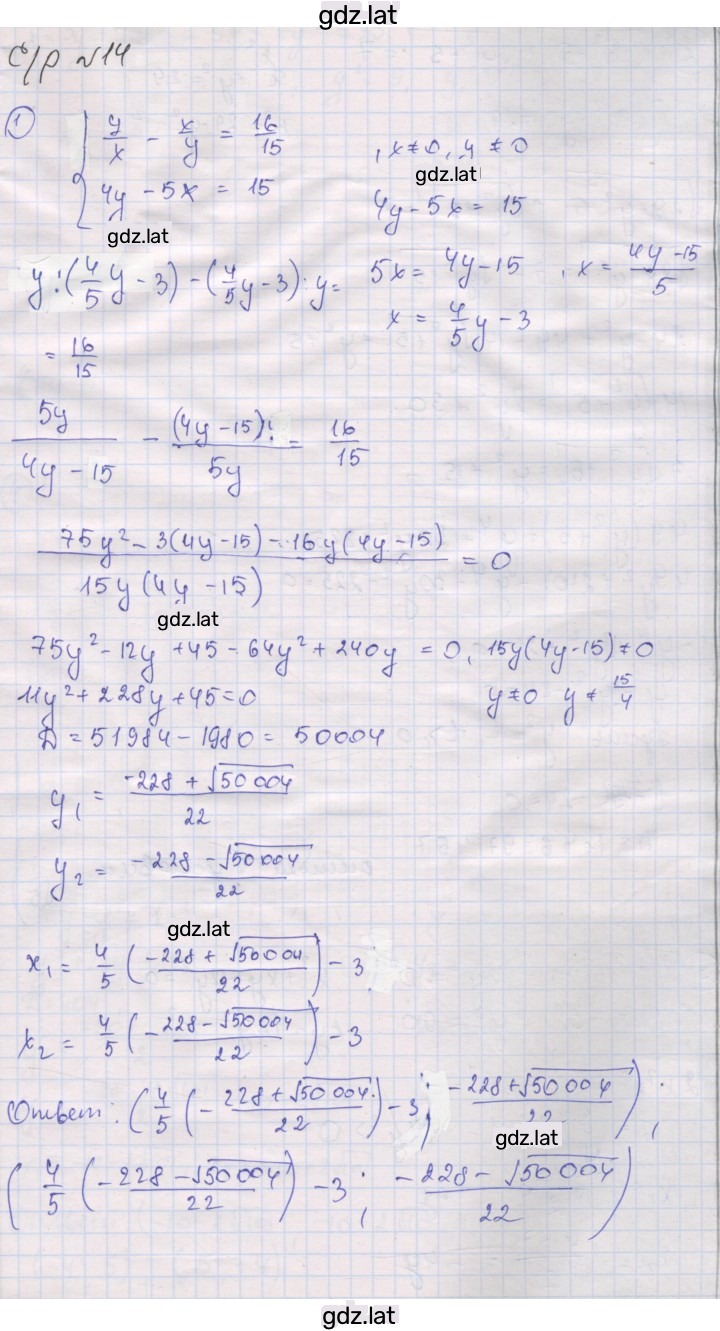 gdz.lat
С/р №14
1 { y/x - x/y = 16/15 , x ≠ 0, y ≠ 0
gdz.lat
4y - 5x = 15 4y - 5x = 15
gdz.lat
y : (4/5 y - 3) - (4/5 y - 3) : y = 5x = 4y - 15 , x = (4y - 15)/5
= 16/15 x = 4/5 y - 3
5y/(4y - 15) - (4y - 15)/5y = 16/15
(75y² - 3(4y - 15) - 16y(4y - 15))/(15y(4y - 15)) = 0
gdz.lat
75y² - 12y + 45 - 64y² + 240y = 0, 15y(4y - 15) ≠ 0
11y² + 228y + 45 = 0 y ≠ 0 y ≠ 15/4
D = 51984 - 1980 = 50004
y₁ = (-228 + √50004)/22
y₂ = (-228 - √50004)/22
gdz.lat
x₁ = 4/5 ((-228 + √50004)/22) - 3
x₂ = 4/5 (-(228 - √50004)/22) - 3
Ответ: (4/5 (-(228 + √50004)/22) - 3; (-228 + √50004)/22);
gdz.lat
(4/5 ((-228 - √50004)/22) - 3; (-228 - √50004)/22)
gdz.lat